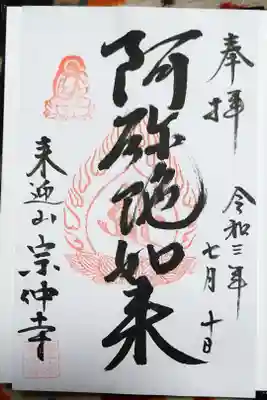 奉拝
令和三年
七月十日
阿弥陀如来
来迎山
宗仲寺